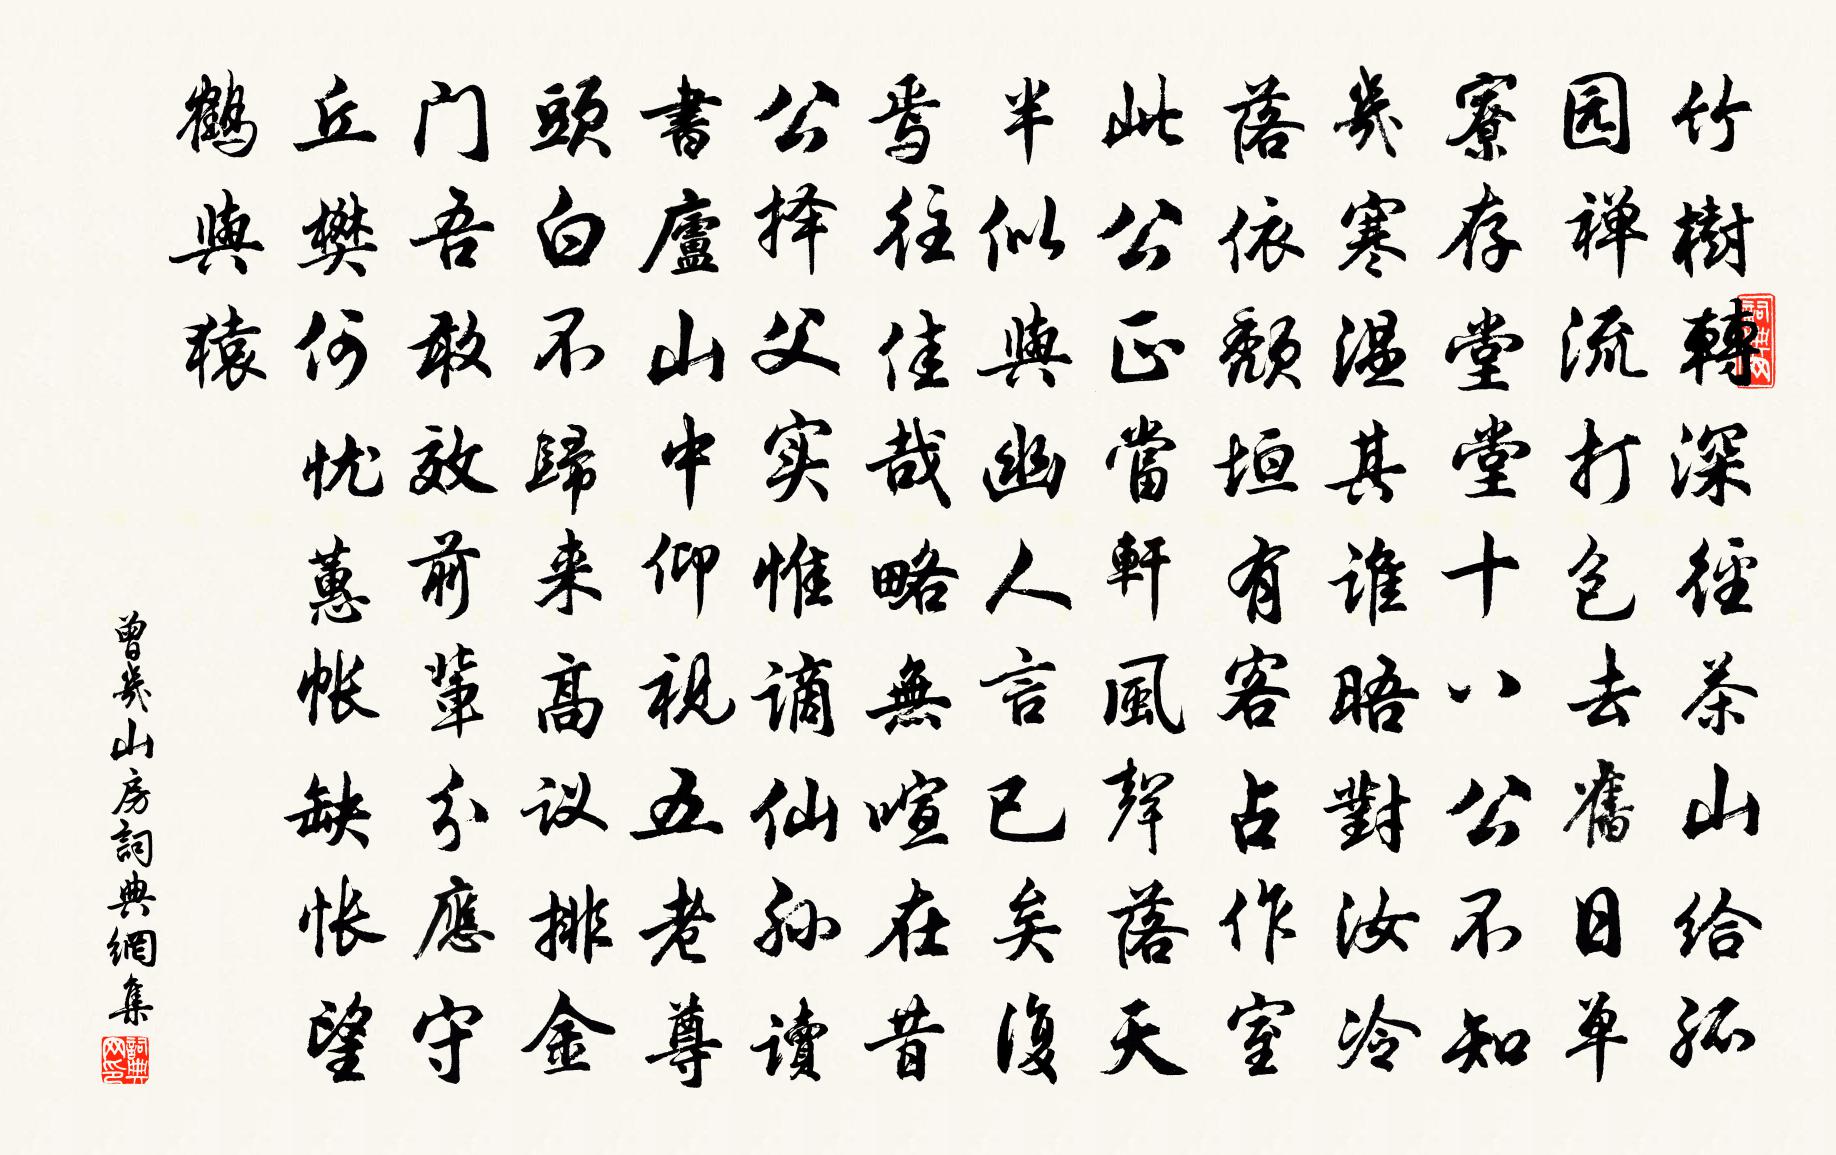 竹樹轉深徑茶山給孤
园禅流打包去舊日单
寮存堂堂十八公不知
幾寒温其誰晤對汝冷
落依頹垣有客占作室
此公正當軒風聲落天
半似與幽人言已矣復
焉往佳哉略無喧在昔
公择父实惟謫仙孙讀
書廬山中仰視五老尊
頭白不歸来高议排金
门吾敢效前輩分應守
丘樊何忧蕙帐缺怅望
鶴與猿
曾幾山房詞典網集
詞典网印